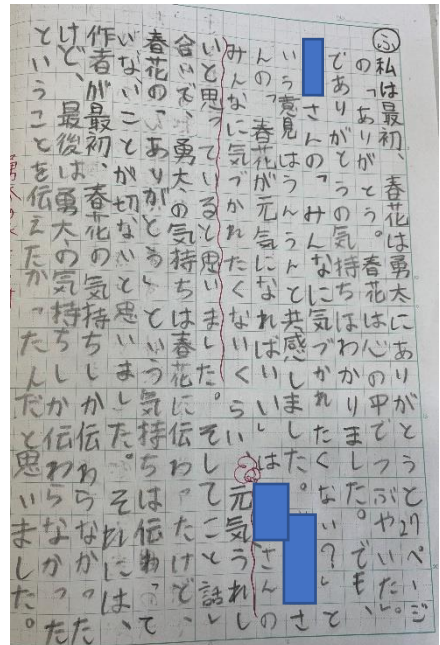 ふ私は最初、春花は勇太にありがとうと27ページ
の「ありがとう。春花は心の中でつぶやいた。」
でありがとうの気持ちはわかりました。でも、
さんの「みんなに気づかれたくない?」と
いう意見はうんうんと共感しました。さ
んの「春花が元気になればいい」はさんの
みんなに気づかれたくないくらい元気うれし
いと思っていると思いました。そしてこと話し
合いで、勇太の気持ちは春花に伝わったけど、
春花の「ありがとう」という気持ちは伝わって
いないことが切ないと思いました。それには、
作者が最初、春花の気持ちしか伝わらなかった
けど、最後は勇太の気持ちしか伝わらなかった
ということを伝えたかったんだと思いました。